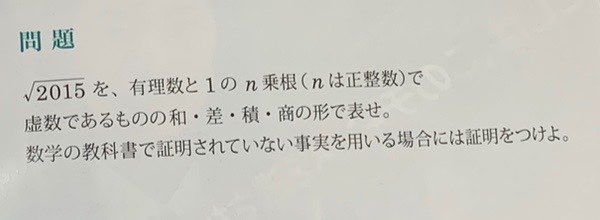 問題
√2015 を、有理数と 1 の n 乗根(n は正整数)で
虚数であるものの和・差・積・商の形で表せ。
数学の教科書で証明されていない事実を用いる場合には証明をつけよ。